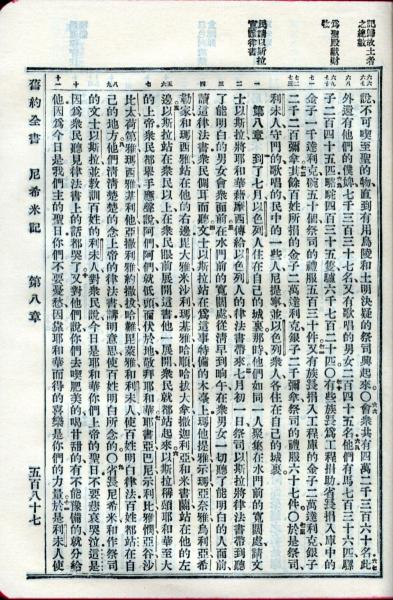 記歸故土者
之總數
為聖殿獻財
物
民請以斯拉
宣讀律書
說、不可喫至聖的物、直到有用烏陵和土明決疑的祭司興起來○會眾共有四萬二千三百六十名、此
外還有他們的僕婢七千三百三十七名、又有歌唱的男女二百四十五名、他們有馬七百三十六匹、騾
子二百四十五匹、駱駝四百三十五隻、驢六千七百二十匹○有些族長為工程捐助、省長捐入庫中的
金子一千達利克、碗五十個、祭司的禮服五百三十件、又有族長捐入工程庫的金子二萬達利克、銀子
二千二百彌拿、其餘百姓所捐的金子二萬達利克、銀子二千彌拿、祭司的禮服六十七件○於是祭司、
利未人、守門的、歌唱的、民中的一些人、尼提寧、並以色列眾人、各住在自己的城裏、
第八章 到了七月、以色列人住在自己的城裏、那時他們如同一人聚集在水門前的寬闊處、請文
士以斯拉將耶和華藉摩西傳給以色列人的律法書帶來、七月初一日、祭司以斯拉將律法書帶到聽
了能明白的男女會眾面前、在水門前的寬闊處、從清早到晌午、在眾男女一切聽了能明白的人面前、
讀這律法書、眾民側耳而聽、文士以斯拉站在為這事特備的木臺上、瑪他提雅示瑪亞奈雅烏利亞希
勒家和瑪西雅站在他的右邊、毘大雅米沙利瑪基雅哈順哈拔大拿撒迦利亞和米書蘭站在他的左
邊、以斯拉站在眾民以上、在眾民眼前展開這書、他一展開、眾民就都站起來、以斯拉稱頌耶和華至大
的上帝、眾民都舉手應聲說、阿們、阿們、就低頭、面伏於地、敬拜耶和華、耶書亞巴尼示利比雅雅憫亞谷沙
比太荷第雅瑪西雅基利他亞撒利雅約撒拔哈難毘萊雅和利未人使百姓明白律法、百姓都站在自
己的地方、他們清清楚楚的念上帝的律法書、講明意思、使百姓明白所念的○省長尼希米和作祭司
的文士以斯拉、並教訓百姓的利未人、對眾民說、今日是耶和華你們上帝的聖日、不要悲哀哭泣、這是
因為眾民聽見律法書上的話都哭了、又對他們說、你們去喫肥美的、喝甘甜的、有不能豫備的、就分給
他、因為今日是我們主的聖日、你們不要憂愁、因靠耶和華而得的喜樂是你們的力量、於是利未人使
舊約全書 尼希米記 第八章 五百八十七